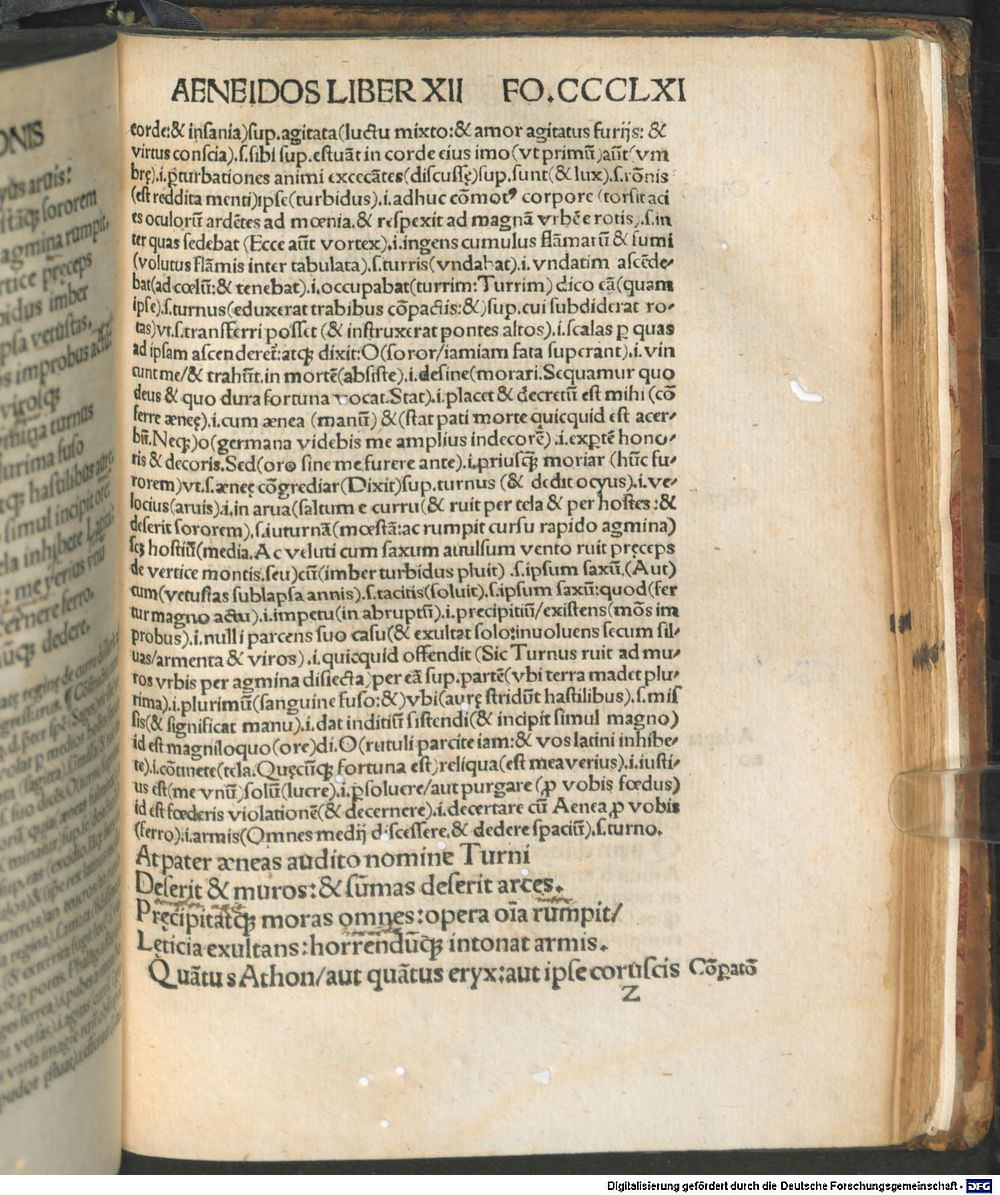 ONIS
yus aruis:
stāq; sororem
agmina rumpit,
rtice pręceps
bidus imber
psa vetustas,
os improbus actu
virosq;
mina turnus
lurima fuso
tq; hastilibus
simul incipit ore
ela inhibete Latini
: me verius vnū
cernere ferro,
nūq; dedere.
AENEIDOS LIBER XII FO.CCCLXI
corde:& insania)sup.agitata(luctu mixto:& amor agitatus furijs: &
virtus conscia).s.sibi sup.estuāt in corde eius imo(vt primū)aūt(vm
brę).i.ꝑturbationes animi excecātes(discussę)sup.sunt(& lux).s.rōnis
(est reddita menti)ipse(turbidus).i.adhuc cōmotꝰ corpore (torsit aci
es oculorū ardētes ad mœnia.& respexit ad magnā vrbē e rotis).s.in
ter quas sedebat (Ecce aūt vortex).i.ingens cumulus flāmarū & fumi
(volutus flāmis inter tabulata).s.turris(vndabat).i.vndatim ascēde-
bat(ad cœlū:& tenebat).i.occupabat(turrim:Turrim) dico eā(quam
ipse).s.turnus(eduxerat trabibus cōpactis:&)sup.cui subdiderat ro-
tas)vt.s.transferri posset (& instruxerat pontes altos).i.scalas ꝑ quas
ad ipsam ascenderet:atq; dixit:O(soror/iamiam fata superant).i.vin
cunt me/& trahūt.in mortē(absiste).i.desine(morari.Sequamur quo
deus & quo dura fortuna vocat.Stat).i.placet & decretū est mihi(cō
ferre ænęę).i.cum ænea (manū) &(stat pati morte quicquid est acer-
bū.Neq;)o(germana videbis me amplius indecorē).i.exꝑtē hono-
ris & decoris.Sed(oro sine me furere ante).i.priusq̄ moriar (hūc fu-
rorem)vt.s.ænęę cōgrediar(Dixit)sup.turnus (& dedit ocyus).i.ve-
locius(aruis).i.in arua(saltum e curru(& ruit per tela & per hostes:&
deserit sororem).s.iuturnā(mœstā:ac rumpit cursu rapido agmina)
scꝫ hostiū(media.Ac veluti cum saxum auulsum vento ruit pręceps
de vertice montis.seu)cū(imber turbidus pluit) .s.ipsum saxū,(Aut)
cum(vetustas sublapsa annis).s.tacitis(soluit).s.ipsum saxū:quod(fer
tur magno actu).i.impetu(in abruptū).i.precipitiū/existens(mōs im
probus).i.nulli parcens suo casu(& exultat solo:inuoluens secum sil-
uas/armenta & viros).i.quicquid offendit (Sic Turnus ruit ad mu-
ros vrbis per agmina disiecta)per eā sup.partē(vbi terra madet plu-
rima).i.plurimū(sanguine fuso:&)vbi(aurę stridūt hastilibus).s.mis
sis(& significat manu).i.dat inditiū sistendi(& incipit simul magno)
id est magniloquo(ore)di.O(rutuli parcite iam:& vos latini inhibe-
te).i.cōtinete(tela.Quęcūq; fortuna est)reliqua(est mea verius).i.iusti-
us est(me vnū)solū(lucre).i.ꝑsoluere/aut purgare(ꝓ vobis fœdus)
id est fœderis violationē(& decernere).i.decertare cū Aenea ꝓ vobis
(ferro).i.armis(Omnes medij discessere.& dedere spaciū).s.turno.
At pater æneas audito nomine Turni
Deserit & muros:& sūmas deserit arces.
Pręcipitatq; moras omnes:opera oīa rumpit/
Lęticia exultans:horrendūq; intonat armis.
Quātus Athon/aut quātus eryx:aut ipse coruscis Cōꝑatō
Z
Digitalisierung gefördert durch die Deutsche Forschungsgemeinschaft - DFG